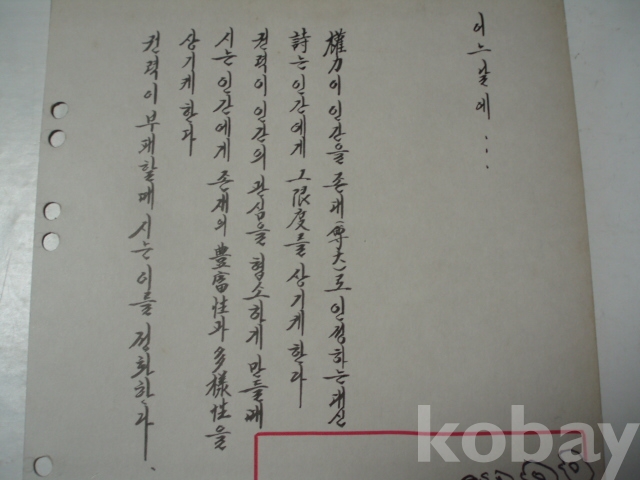 어느날에...
權力이 인간을 존대(尊大)로 인정하는대신
詩는 인간에게 그限度를 상기케한다
권력이 인간의 관심을 협소하게 만들때
시는 인간에게 존재의 豊富性과 多樣性을
상기케 한다
권력이 부패할때 시는 이를 정화한다.
kobay